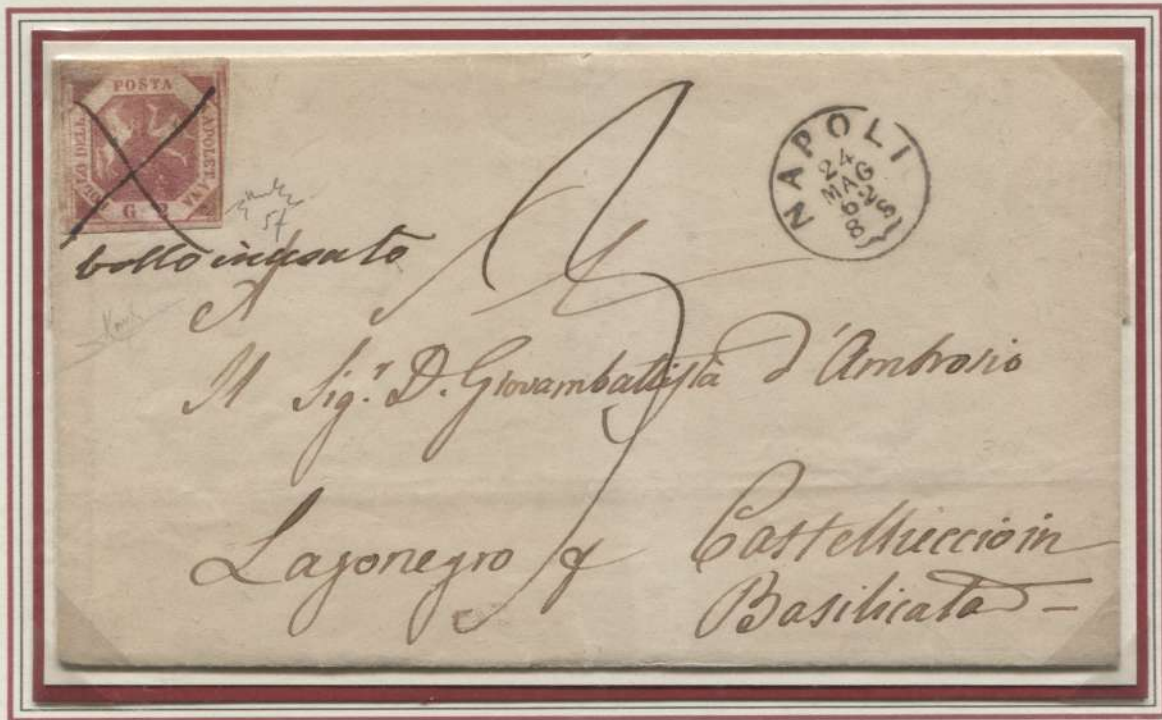 POSTA
BOLLO DELLA
NAPOLETANA
G. 2
57
bollo inusato
NAPOLI
24
MAG
62
8 S
A
Al Sig.r D. Giovambattista d'Ambrosio
Lagonegro
Castelluccio in
Basilicata